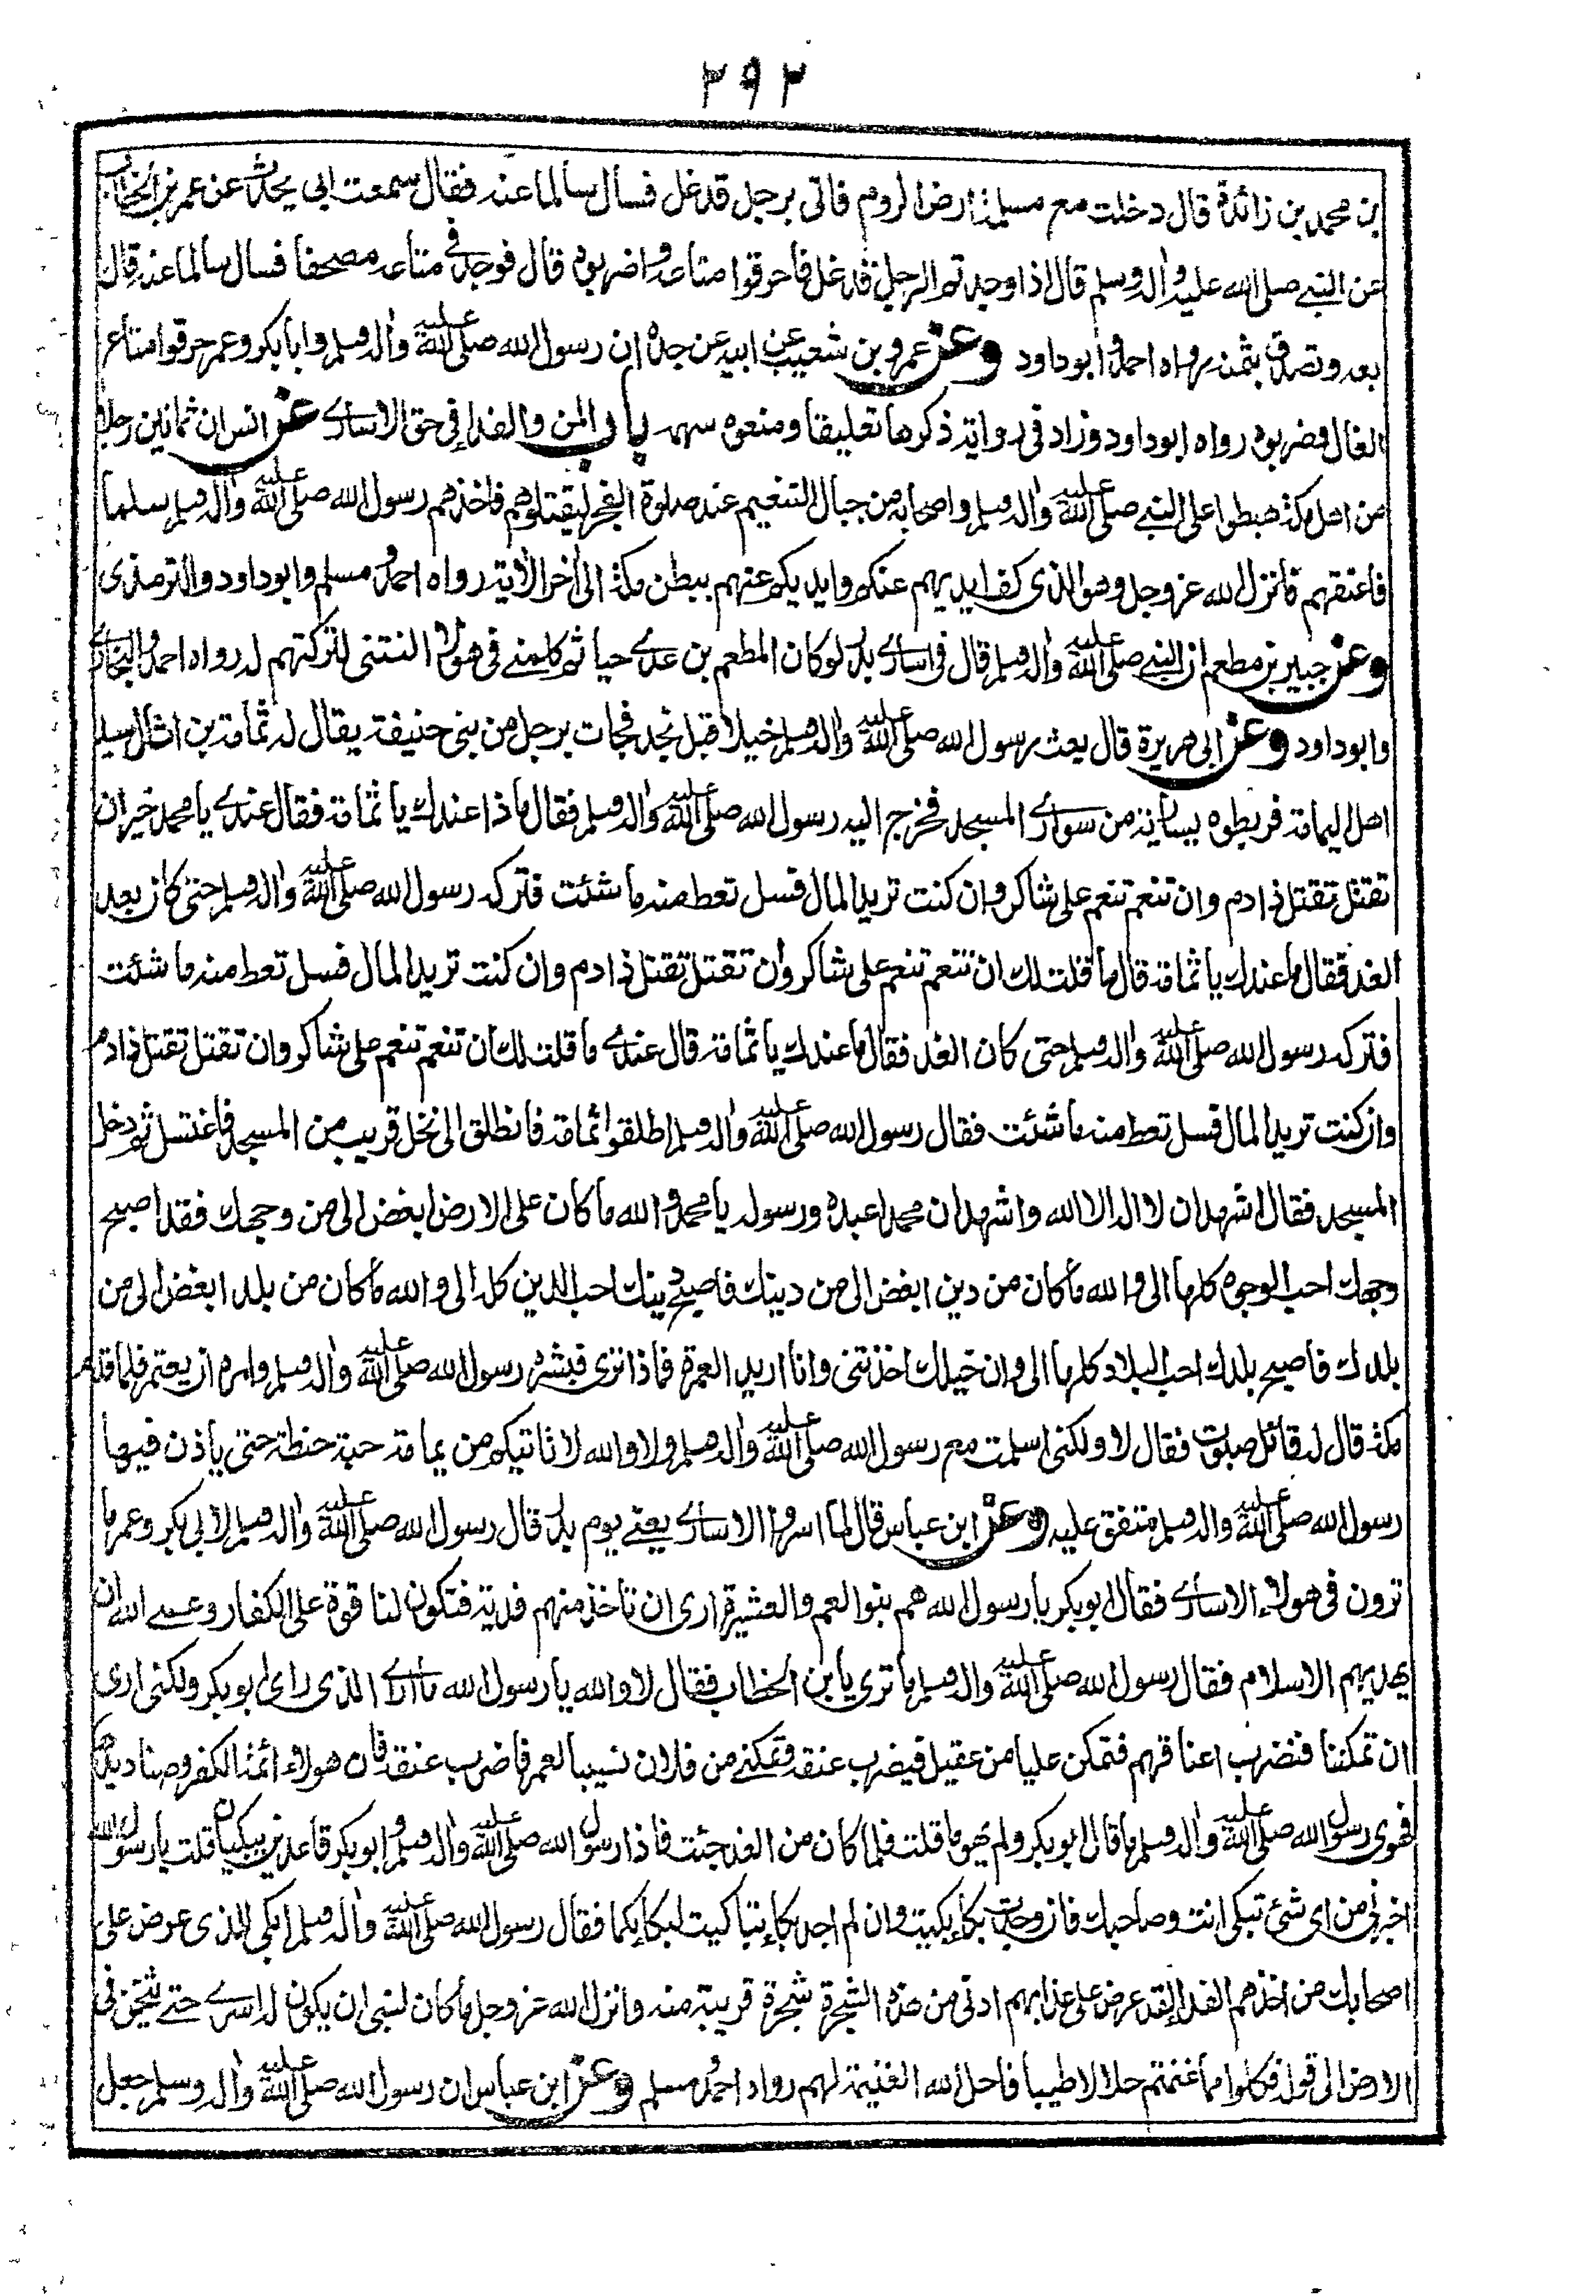 ٢٩٢
بن محمد بن زائدة قال دخلت مع مسلمة ارض الروم فاتى برجل قد غل فسأل سالما عنه فقال سمعت ابى يحدث عن عمر بن الخطاب
عن النبي صلى الله عليه وآله وسلم قال اذا وجدتم الرجل قد غل فاحرقوا متاعه واضربوه قال فوجد في متاعه مصحفا فسال سالما عنه قال
بعه وتصدق بثمنه رواه احمد وابوداود وعن عمرو بن شعيب عن ابيه عن جده ان رسول الله صلى الله عليه وآله وسلم وابابكر وعمر حرقوا متاع
الغال وضربوه رواه ابوداود وزاد في رواية ذكرها تعليقا ومنعوه سهمه باب المن والفداء في حق الاسارى عن انس ان ثمانين رجلا
من اهل مكة هبطوا على النبي صلى الله عليه وآله وسلم واصحابه من جبال التنعيم عند صلوة الفجر ليقتلوهم فاخذهم رسول الله صلى الله عليه وآله وسلم سلما
فاعتقهم فانزل الله عز وجل وهو الذى كف ايديهم عنكم وايديكم عنهم ببطن مكة الى اخر الآية رواه احمد ومسلم وابوداود والترمذى
وعن جبير بن مطعم ان النبي صلى الله عليه وآله وسلم قال في اسارى بدر لو كان المطعم بن عدى حيا ثم كلمنى في هولاء النتنى لتركتهم له رواه احمد والبخارى
وابوداود وعن ابى هريرة قال بعث رسول الله صلى الله عليه وآله وسلم خيلا قبل نجد فجات برجل من بنى حنيفة يقال له ثمامة بن اثال سيد
اهل اليمامة فربطوه بسارية من سوارى المسجد فخرج اليه رسول الله صلى الله عليه وآله وسلم فقال ماذا عندك يا ثمامة فقال عندى يا محمد خير ان
تقتل تقتل ذا دم وان تنعم تنعم على شاكر وان كنت تريد المال فسل تعط منه ما شئت فتركه رسول الله صلى الله عليه وآله وسلم حتى كان بعد
الغد فقال ما عندك يا ثمامة قال ما قلت لك ان تنعم تنعم على شاكر وان تقتل تقتل ذا دم وان كنت تريد المال فسل تعط منه ما شئت
فتركه رسول الله صلى الله عليه وآله وسلم حتى كان الغد فقال ما عندك يا ثمامة قال عندى ما قلت لك ان تنعم تنعم على شاكر وان تقتل تقتل ذا دم
وان كنت تريد المال فسل تعط منه ما شئت فقال رسول الله صلى الله عليه وآله وسلم اطلقوا ثمامة فانطلق الى نخل قريب من المسجد فاغتسل ثم دخل
المسجد فقال اشهد ان لا اله الا الله واشهد ان محمدا عبده ورسوله يا محمد والله ما كان على الارض ابغض الى من وجهك فقد اصبح
وجهك احب الوجوه كلها الى والله ما كان من دين ابغض الى من دينك فاصبح دينك احب الدين كله الى والله ما كان من بلد ابغض الى من
بلدك فاصبح بلدك احب البلاد كلها الى وان خيلك اخذتنى وانا اريد العمرة فماذا ترى فبشره رسول الله صلى الله عليه وآله وسلم وامره ان يعتمر فلما قدم
مكة قال له قائل صبوت فقال لا ولكنى اسلمت مع رسول الله صلى الله عليه وآله وسلم ولا والله لا تاتيكم من يمامة حبة حنطة حتى ياذن فيها
رسول الله صلى الله عليه وآله وسلم متفق عليه وعن ابن عباس قال لما اسروا الاسارى يعنى يوم بدر قال رسول الله صلى الله عليه وآله وسلم لابى بكر وعمر ما
ترون في هولاء الاسارى فقال ابوبكر يا رسول الله هم بنو العم والعشيرة ارى ان تاخذ منهم فدية فتكون لنا قوة على الكفار وعسى الله ان
يهديهم الاسلام فقال رسول الله صلى الله عليه وآله وسلم ما ترى يا ابن الخطاب فقال لا والله يا رسول الله ما ارى الذى راى ابوبكر ولكنى ارى
ان تمكننا فنضرب اعناقهم فتمكن عليا من عقيل فيضرب عنقه وتمكنى من فلان نسيبا لعمر فاضرب عنقه فان هولاء ائمة الكفر وصناديدها
فهوى رسول الله صلى الله عليه وآله وسلم ما قال ابوبكر ولم يهو ما قلت فلما كان من الغد جئت فاذا رسول الله صلى الله عليه وآله وسلم وابوبكر قاعدين يبكيان قلت يا رسول الله
اخبرنى من اى شئ تبكى انت وصاحبك فان وجدت بكاء بكيت وان لم اجد بكاء تباكيت لبكائكما فقال رسول الله صلى الله عليه وآله وسلم ابكى للذى عرض على
اصحابك من اخذهم الفداء لقد عرض على عذابهم ادنى من هذه الشجرة شجرة قريبة منه وانزل الله عز وجل ما كان لنبى ان يكون له اسرى حتى يثخن فى
الارض الى قوله فكلوا مما غنمتم حلالا طيبا فاحل الله الغنيمة لهم رواه احمد ومسلم وعن ابن عباس ان رسول الله صلى الله عليه وآله وسلم جعل